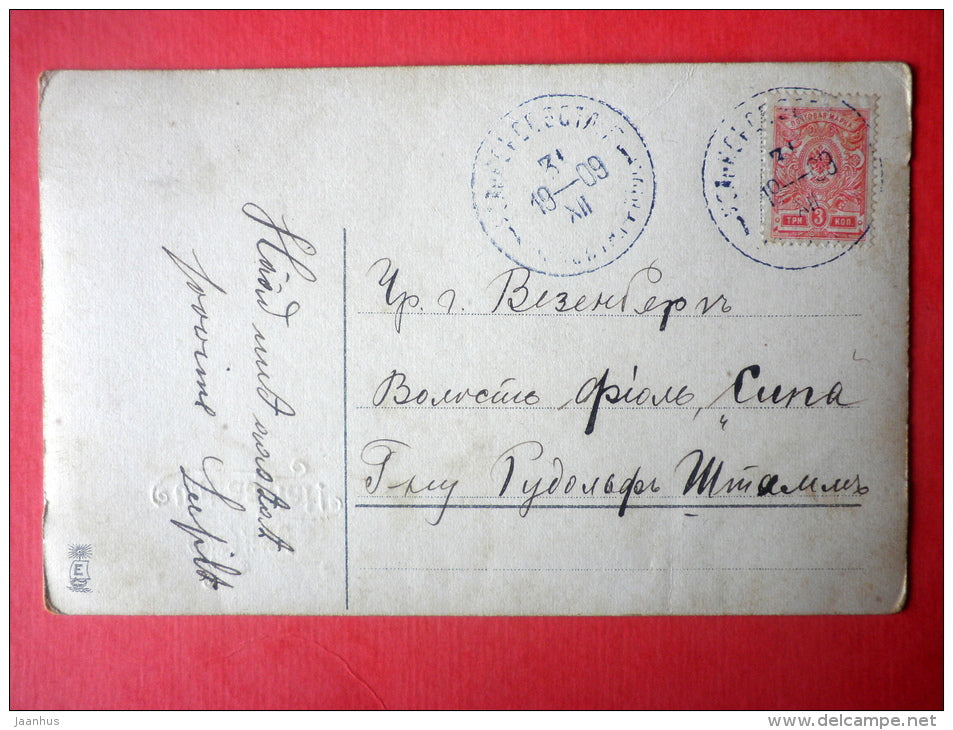 31
19—09
XII
ПОЧТОВАЯ МАРКА
31
19—09
XII
ТРИ 3 КОП.
Чр. г. Везенбергъ
Волость Фіоль, "Сипа"
Г-ну Рудольфъ Штаммъ
Hääd uut aastat
soovime
E
jaanhus
www.delcampe.net